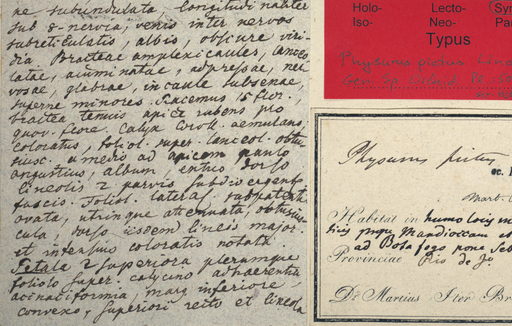 ne subundulata, longitudinaliter
sub 8-nervia, venis inter nervos
subreticulatis, albis, obscure viri-
dia. Bracteae amplexicaules, lanceo-
latae, acuminatae, adpressae, ner-
vosae, glabrae, in caule subgenae,
superne minores. Racemus 15 flor.,
bractea tenuis apice rubens pro
quov. flore. Calyx Coroll. aemulans,
coloratus, foliol. super. lanceol. obtu-
iusc. a medio ad apicem paulo
angustius, album, extus dorso
lineolis 2 parvis subdivergentes
fuscis. Foliol. lateral. subpatent
ovata, utrinque attenuata, obtusius-
cula, dorso iisdem lineis major.
et intensius coloratis notata
Petala 2 superiora plerumque
foliolo super. calycino adhaerentia
acinaciformia, marg. inferiore
convexo, superiori recto et lineola
Holo- Lecto- (Syn
Iso- Neo- Par
Typus
Physurus pictus Lind
Physurus pictus
ec.
Mart.
Habitat in humo loris
prope Mandioccam et
ad Bota fogo pone Seb
Provinciae Rio de Ja
Dr. Martius Iter Br